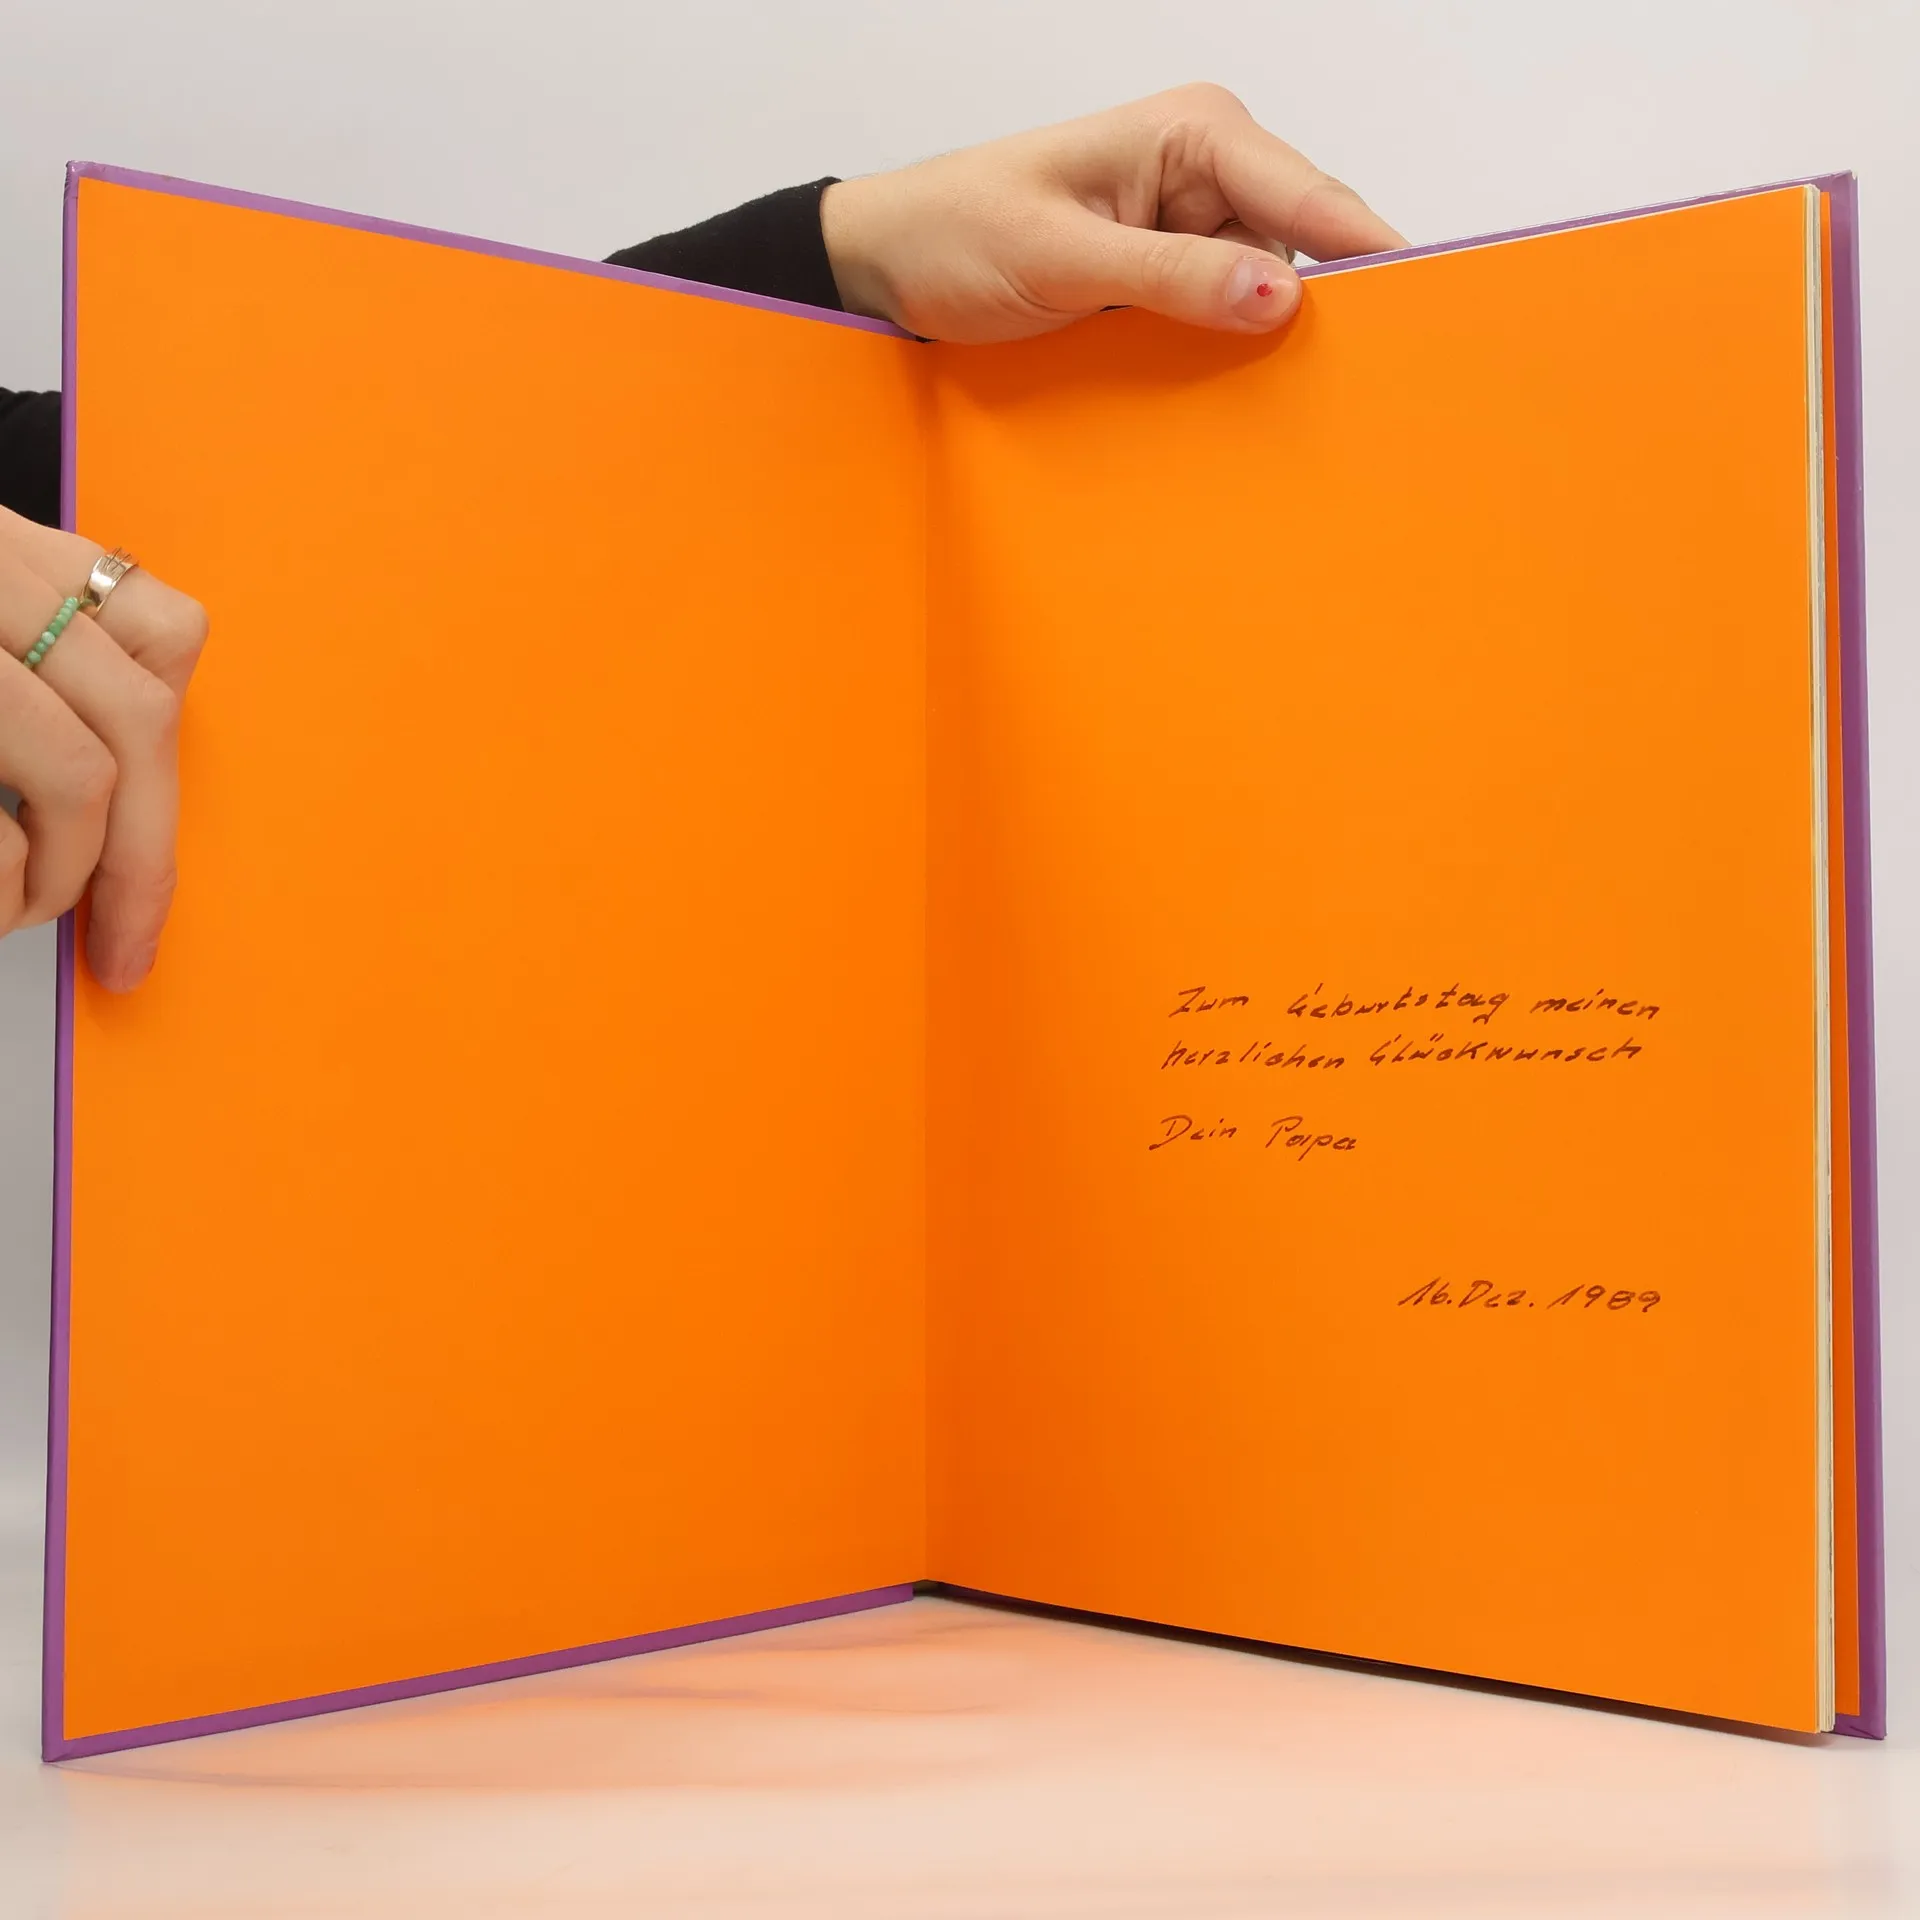 Zum Geburtstag meinen
herzlichen Glückwunsch
Dein Papa
16. Dez. 1989